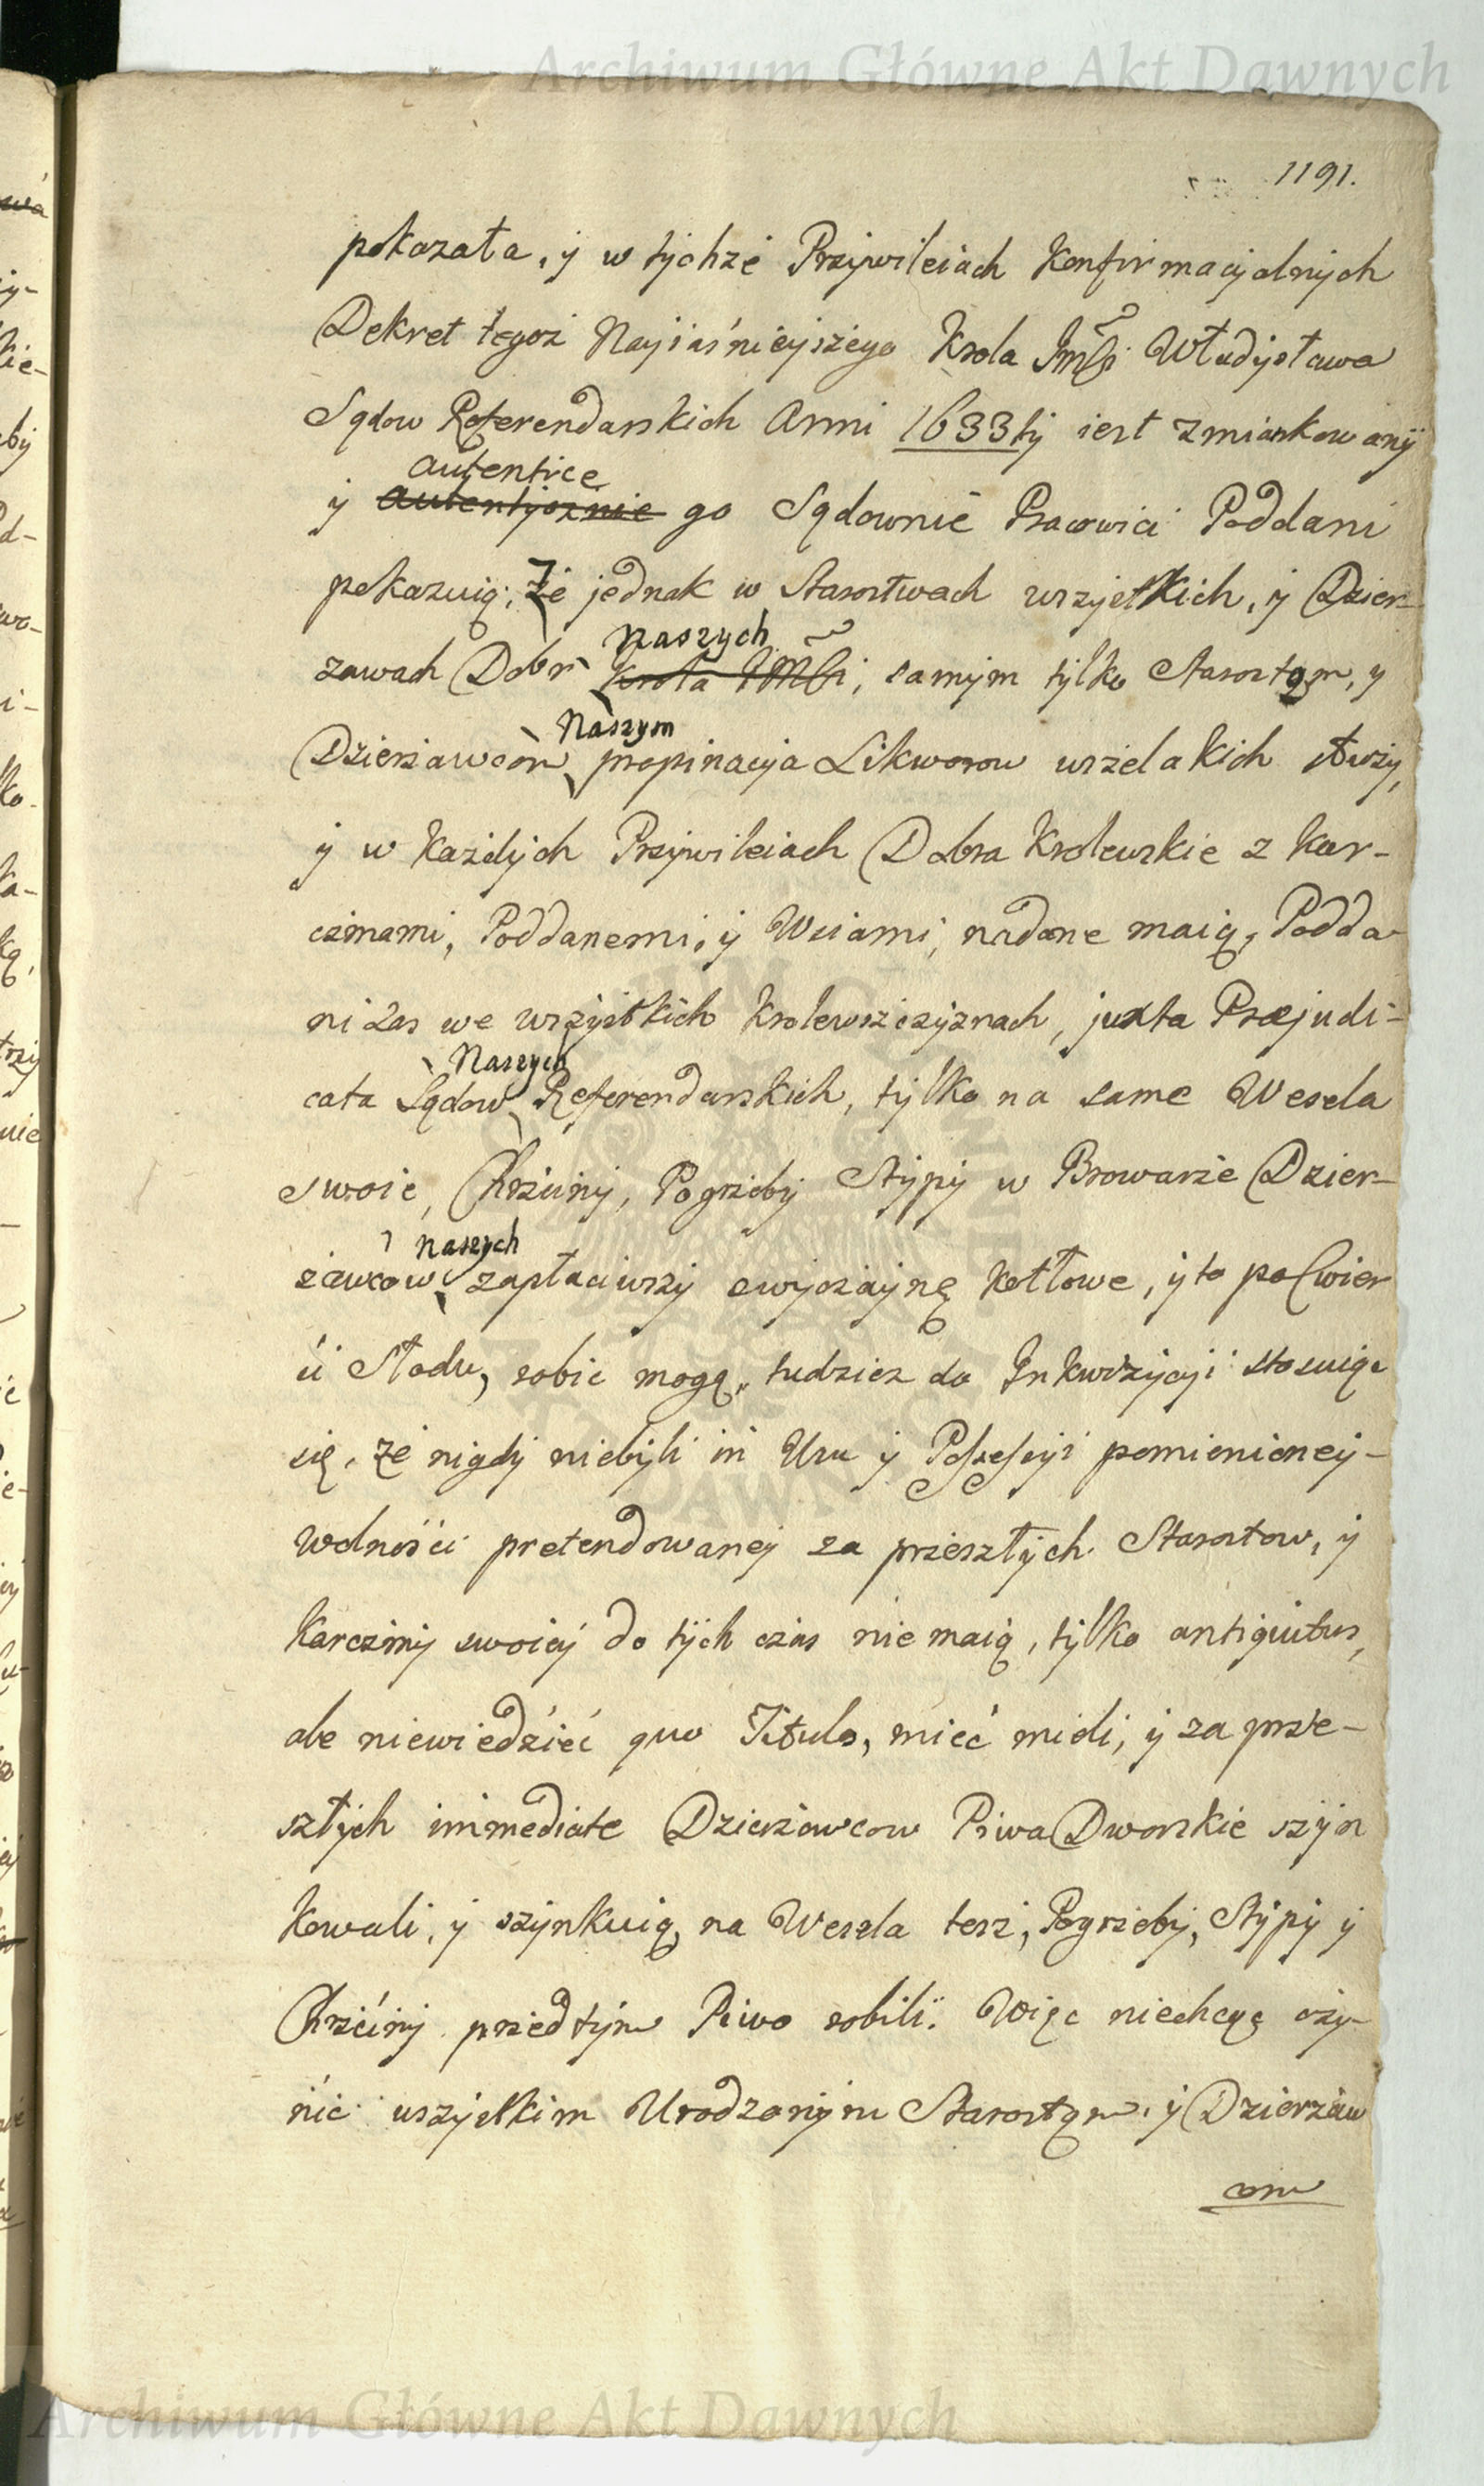 Archiwum Główne Akt Dawnych
1191.
pokazała, y w tychże Przywileiach Konfirmacyalnych
Dekret tegoż Nayiaśnieyszego Krola Jmści Władysława
Sądow Referendarskich Anni 1633tij iest zmiankowany
autentice
y autentycznie go Sądownie Pracowici Poddani
pokazuią; Że jednak w Starostwach wszystkich, y Dzier-
Naszych
zawach Dobr Krola JMści, samym tylko Starostom, y
Naszym
Dzierżawcom propinacya Likworow wszelakich służy,
y w każdych Przywileiach Dobra Krolewskie z kar-
czmami, Poddanemi, y Wsiami, nadane maią, Podda-
ni zas we wszystkich Krolewszczyznach, juxta Præjudi-
Naszych
cata Sądow Referendarskich, tylko na same Wesela
swoie, Chrzciny, Pogrzeby Stypy w Browarze Dzier-
Naszych
żawcow zapłaciwszy zwyczayne kotłowe, y to po Cwier
ci Słodu, robic mogą, tudziez do Inkwizycyi stosuiąc
się, że nigdy niebyli in Usu y Possessyi pomienioney-
wolności pretendowaney za przeszłych Starostow, y
Karczmy swoiey do tych czas nie maią, tylko antiquitus,
ale niewiedzieć quo Titulo, mieć mieli, y za prze-
szłych immediate Dzierżawcow Piwa Dworskie szyn
kowali, y szynkuią, na Wesela tesz, Pogrzeby, Stypy y
Chrzciny przedtym Piwo robili. Więc niechcąc czy-
nic wszystkim Urodzonym Starostom, y Dzierżaw
com
Archiwum Główne Akt Dawnych